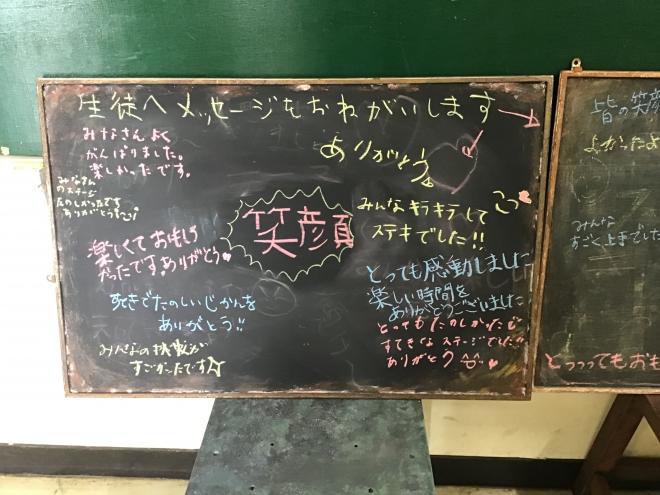 生徒へメッセージをおねがいします→
みなさんよく
がんばりました。
楽しかったです。
みなさん
のステージ
たのしかったです
ありがとう
ありがとう。
笑顔
みんなキラキラして
ステキでした!!
楽しくておもしろ
かったです。ありがとう
とっても感動しました
楽しい時間を
ありがとうございました
すてきでたのしいじかんを
ありがとう!!
とってもたのしかったです
すてきなステージでした!!
ありがとう ^^
みんなの
すごかったです☆
皆の笑顔
よかったよ
みんな
すごく上手でした
とっっってもおも